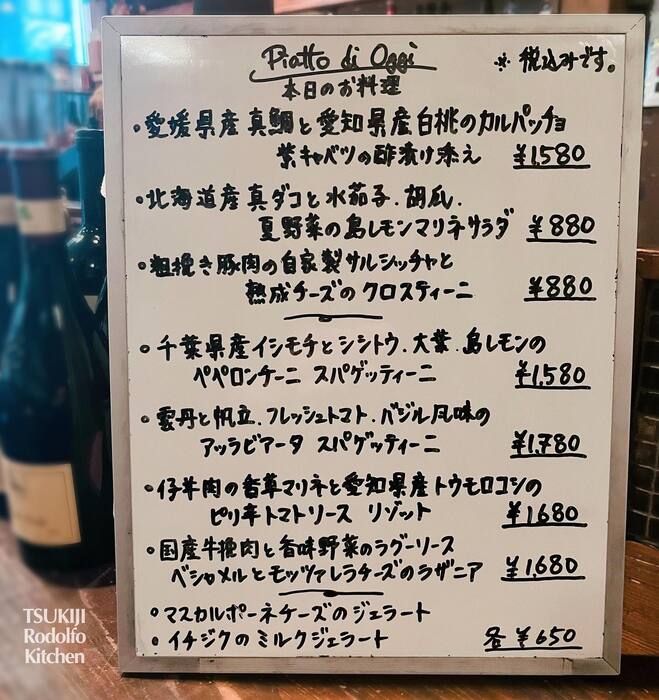 Piatto di Oggi
※ 税込みです。
本日のお料理
・愛媛県産 真鯛と愛知県産白桃のカルパッチョ
紫キャベツの酢漬け添え ¥1,580
・北海道産真ダコと水茄子、胡瓜、
夏野菜の島レモンマリネサラダ ¥880
・粗挽き豚肉の自家製サルシッチャと
熟成チーズのクロスティーニ ¥880
・千葉県産イシモチとシシトウ、大葉、島レモンの
ペペロンチーニ スパゲッティーニ ¥1,580
・雲丹と帆立、フレッシュトマト、バジル風味の
アッラビアータ スパゲッティーニ ¥1,780
・仔羊肉の香草マリネと愛知県産トウモロコシの
ピリ辛トマトソース リゾット ¥1680
・国産牛挽肉と香味野菜のラグーソース
ベシャメルとモッツァレラチーズのラザニア ¥1,680
・マスカルポーネチーズのジェラート
・イチジクのミルクジェラート 各 ¥650
TSUKIJI
Rodolfo
Kitchen